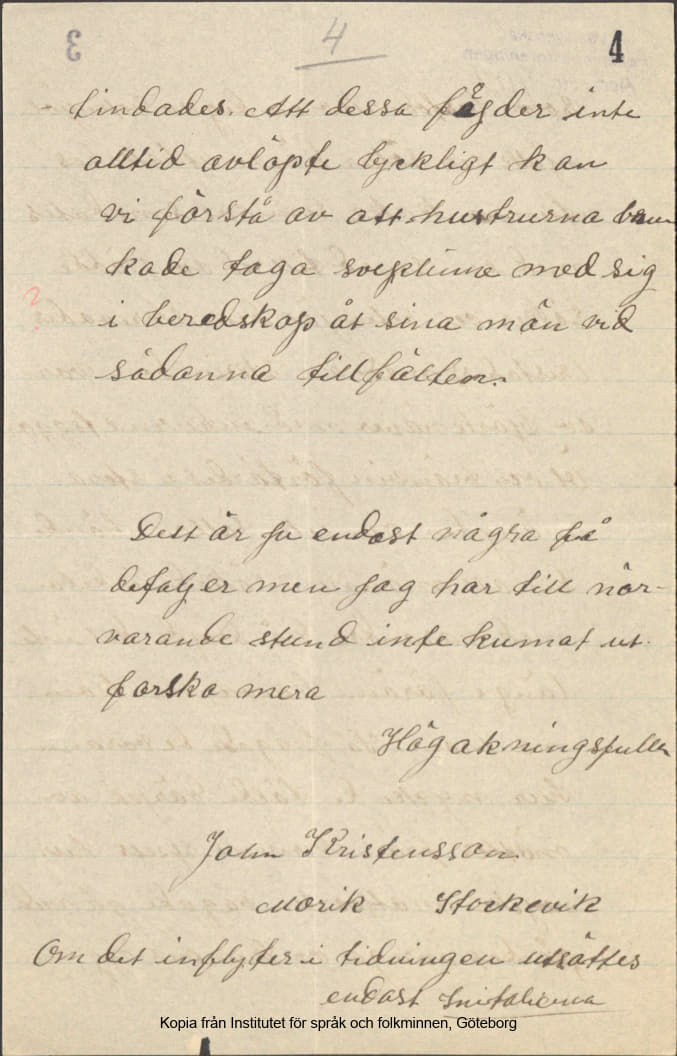 4
4
tindades. Att dessa fågder inte
alltid avlöpte lyckligt kan
vi förstå av att hustrurna bru-
kade taga sveplinne med sig
i beredskap åt sina män vid
sådanna tillfällen.
?
Dett är ju endast några få
detaljer men jag har till när-
varande stund inte kunnat ut-
forska mera
Högakningsfullt
John Kristensson.
Morik Stockevik
Om det inflyter i tidningen utsättes
endast Initalierna
Kopia från Institutet för språk och folkminnen, Göteborg